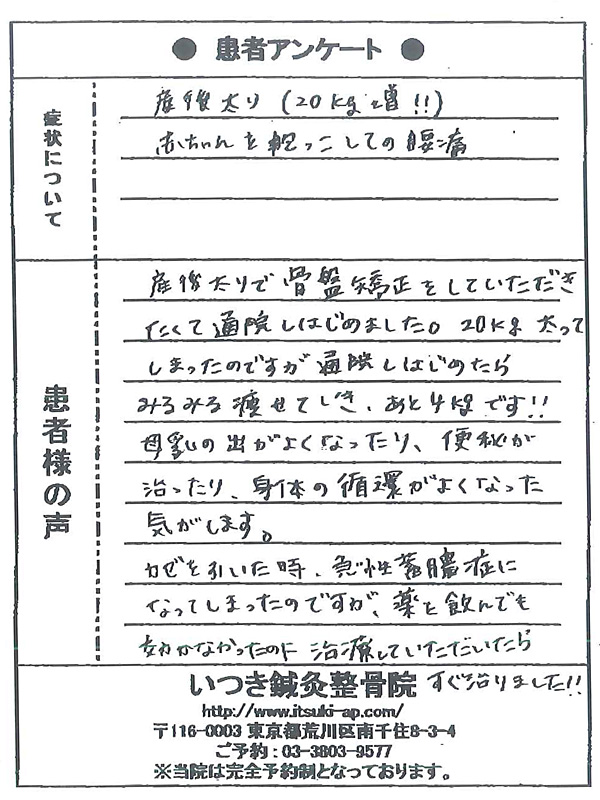 ● 患者アンケート ●
症状について
産後太り（20kg増!!）
赤ちゃんを抱っこしての腰痛
患者様の声
産後太りで骨盤矯正をしていただき
たくて通院しはじめました。20kg太って
しまったのですが通院しはじめたら
みるみる痩せていき、あと4kgです!!
母乳の出がよくなったり、便秘が
治ったり、身体の循環がよくなった
気がします。
カゼを引いた時、急性蓄膿症に
なってしまったのですが、薬を飲んでも
効かなかったのに治療していただいたら
すぐ治りました!!
いつき鍼灸整骨院
http://www.itsuki-ap.com/
〒116-0003 東京都荒川区南千住8-3-4
ご予約：03-3803-9577
※当院は完全予約制となっております。